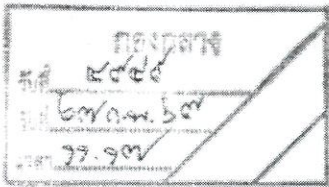 กองกลาง
รับที่
วันที่ ๒๗ ก.พ. ๖๗
เวลา ๑๑.๑๗